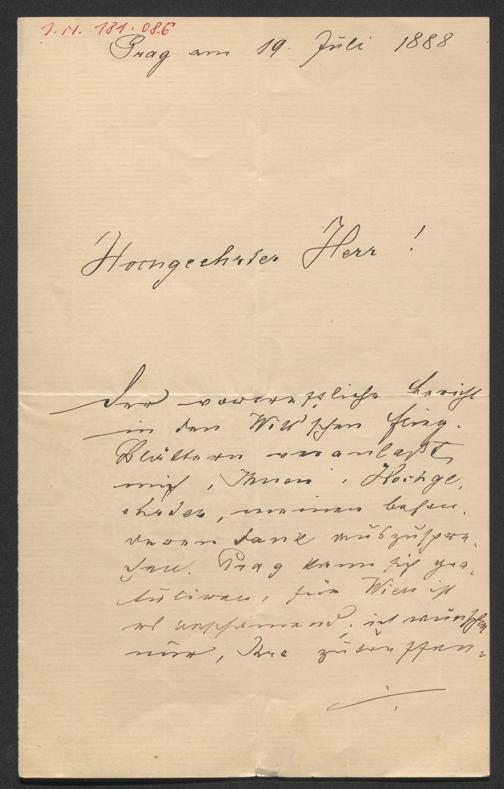 I.N. 181.086
Prag am 19. Juli 1888
Hochgeehrter Herr!
Der vortreffliche Bericht
in den Witt'schen flieg.
Blättern veranlaßt
mich, Ihnen, Hochge¬
ehrter, meinen beson¬
deren Dank auszuspre¬
chen. Prag kann sich gra¬
tuliren, für Wien ist
es beschämend; ich wünsche
nur, Ihre zutreffen¬